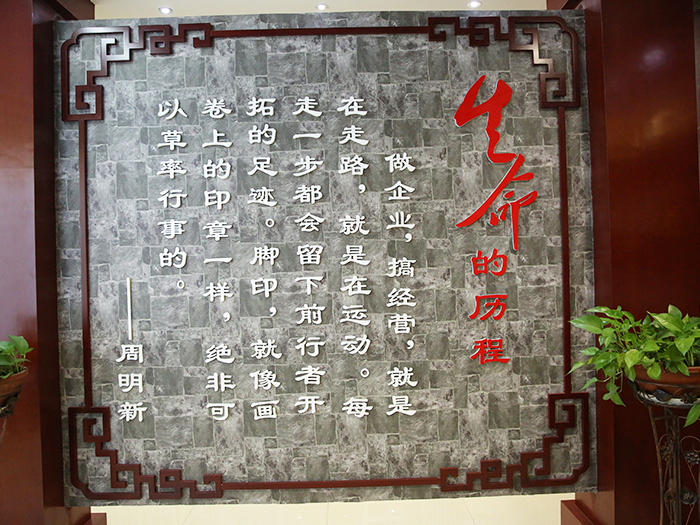 生命的历程
做企业，搞经营，就是
在走路，就是在运动。每
走一步都会留下前行者开
拓的足迹。脚印，就像画
卷上的印章一样，绝非可
以草率行事的。
——周明新